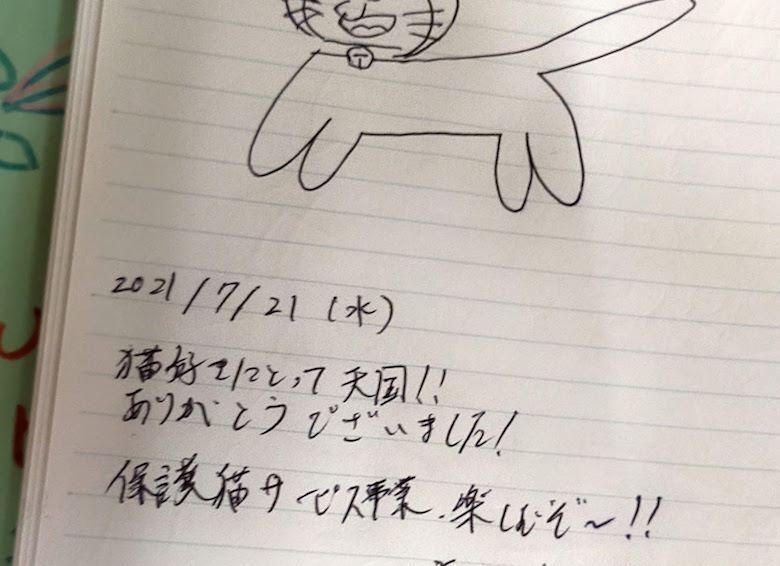 2021/7/21(水)
猫好きにとって天国!!
ありがとうございました!
保護猫サービス事業.楽しむぞ〜!!